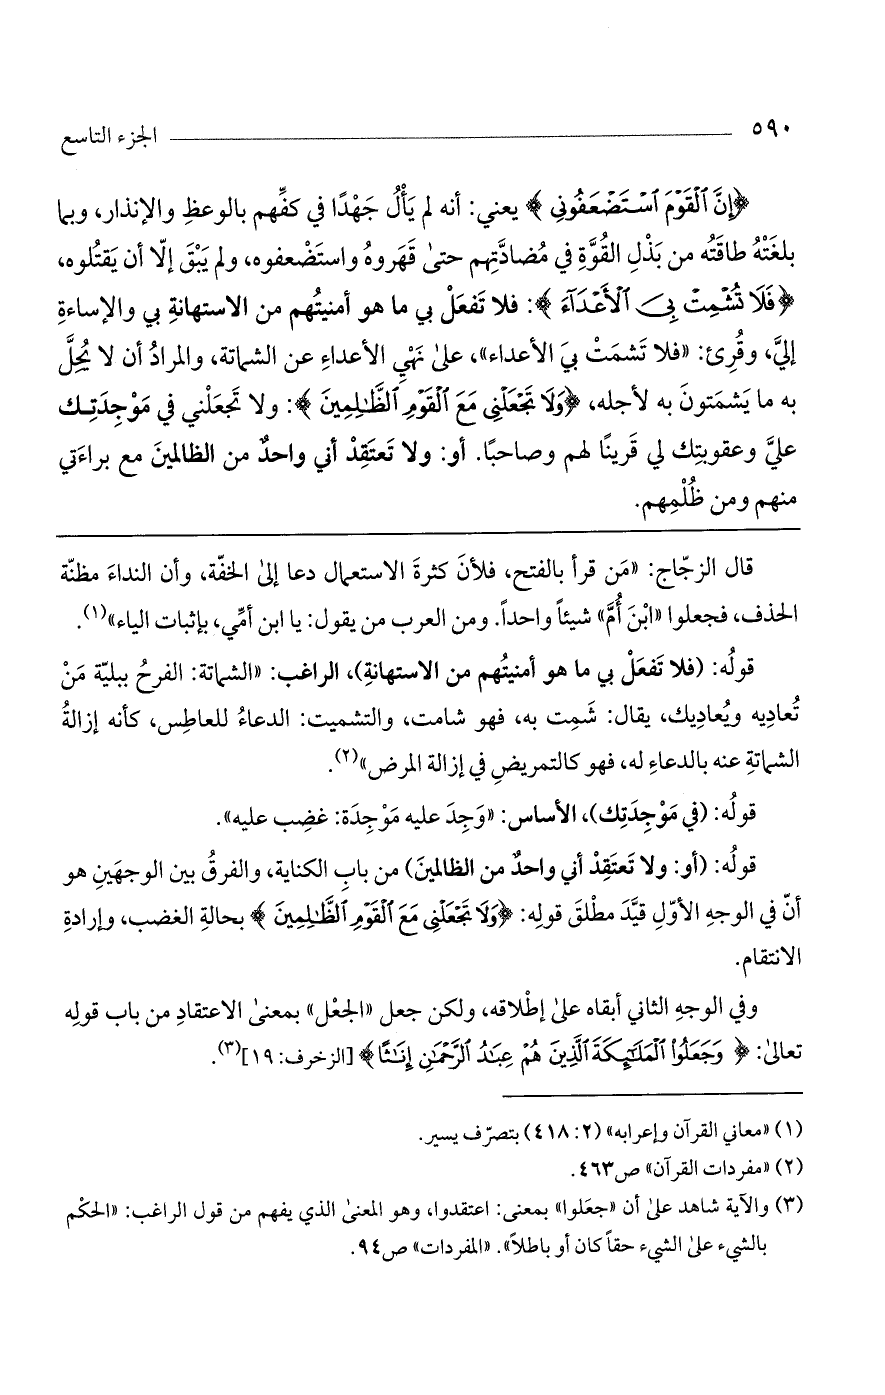 ٥٩٠ الجزء التاسع
﴿إِنَّ ٱلْقَوْمَ ٱسْتَضْعَفُونِي﴾ يعني: أنه لم يَأْلُ جَهْدًا في كفِّهم بالوعظِ والإنذار، وبما
بلغَتْهُ طاقَتُه من بَذْلِ القُوَّةِ في مُضادَّتِهم حتىٰ قَهَروهُ واستَضْعفوه، ولم يَبْقَ إلّا أن يَقتُلوه،
﴿فَلَا تُشْمِتْ بِيَ ٱلْأَعْدَآءَ﴾: فلا تَفعَلْ بي ما هو أمنيتُهم من الاستهانةِ بي والإساءةِ
إليَّ، وقُرِئ: «فلا تَشمَتْ بيَ الأعداء»، علىٰ نَهْيِ الأعداءِ عن الشماتة، والمرادُ أن لا يُحِلَّ
به ما يَشمَتونَ به لأجله، ﴿وَلَا تَجْعَلْنِي مَعَ ٱلْقَوْمِ ٱلظَّٰلِمِينَ﴾: ولا تَجعَلْني في مَوْجِدَتِـك
عليَّ وعقوبتِك لي قَرينًا لهم وصاحبًا. أو: ولا تَعتَقِدْ أني واحدٌ من الظالمينَ مع براءَتي
منهم ومن ظُلْمِهم.
قال الزجّاج: «مَن قرأ بالفتح، فلأنَ كثرةَ الاستعمال دعا إلىٰ الخفّة، وأن النداءَ مظنّة
الحذف، فجعلوا «ابْنَ أُمَّ» شيئاً واحداً. ومن العرب من يقول: يا ابن أمِّي، بإثبات الياء»(١).
قولُه: (فلا تَفعَلْ بي ما هو أمنيتُهم من الاستهانةِ)، الراغب: «الشماتة: الفرحُ ببليّة مَنْ
تُعاديه ويُعاديك، يقال: شَمِت به، فهو شامت، والتشميت: الدعاءُ للعاطِس، كأنه إزالةُ
الشماتةِ عنه بالدعاءِ له، فهو كالتمريضِ في إزالة المرض»(٢).
قولُه: (في مَوْجِدَتِك)، الأساس: «وَجِدَ عليه مَوْجِدَة: غضِب عليه».
قولُه: (أو: ولا تَعتَقِدْ أني واحدٌ من الظالمينَ) من بابِ الكناية، والفرقُ بين الوجهَينِ هو
أنّ في الوجهِ الأوّلِ قيَّدَ مطْلقَ قولِه: ﴿وَلَا تَجْعَلْنِي مَعَ ٱلْقَوْمِ ٱلظَّٰلِمِينَ﴾ بحالةِ الغضب، وإرادةِ
الانتقام.
وفي الوجهِ الثاني أبقاه علىٰ إطْلاقه، ولكن جعل «الجَعْل» بمعنىٰ الاعتقادِ من باب قولِه
تعالىٰ: ﴿وَجَعَلُوا۟ ٱلْمَلَٰٓئِكَةَ ٱلَّذِينَ هُمْ عِبَٰدُ ٱلرَّحْمَٰنِ إِنَٰثًا﴾ [الزخرف: ١٩](٣).
(١) «معاني القرآن وإعرابه» (٢: ٤١٨) بتصرّف يسير.
(٢) «مفردات القرآن» ص٤٦٣.
(٣) والآية شاهد علىٰ أن «جعَلوا» بمعنى: اعتقدوا، وهو المعنىٰ الذي يفهم من قول الراغب: «الحكْم
بالشيء علىٰ الشيء حقاً كان أو باطلاً». «المفردات» ص٩٤.